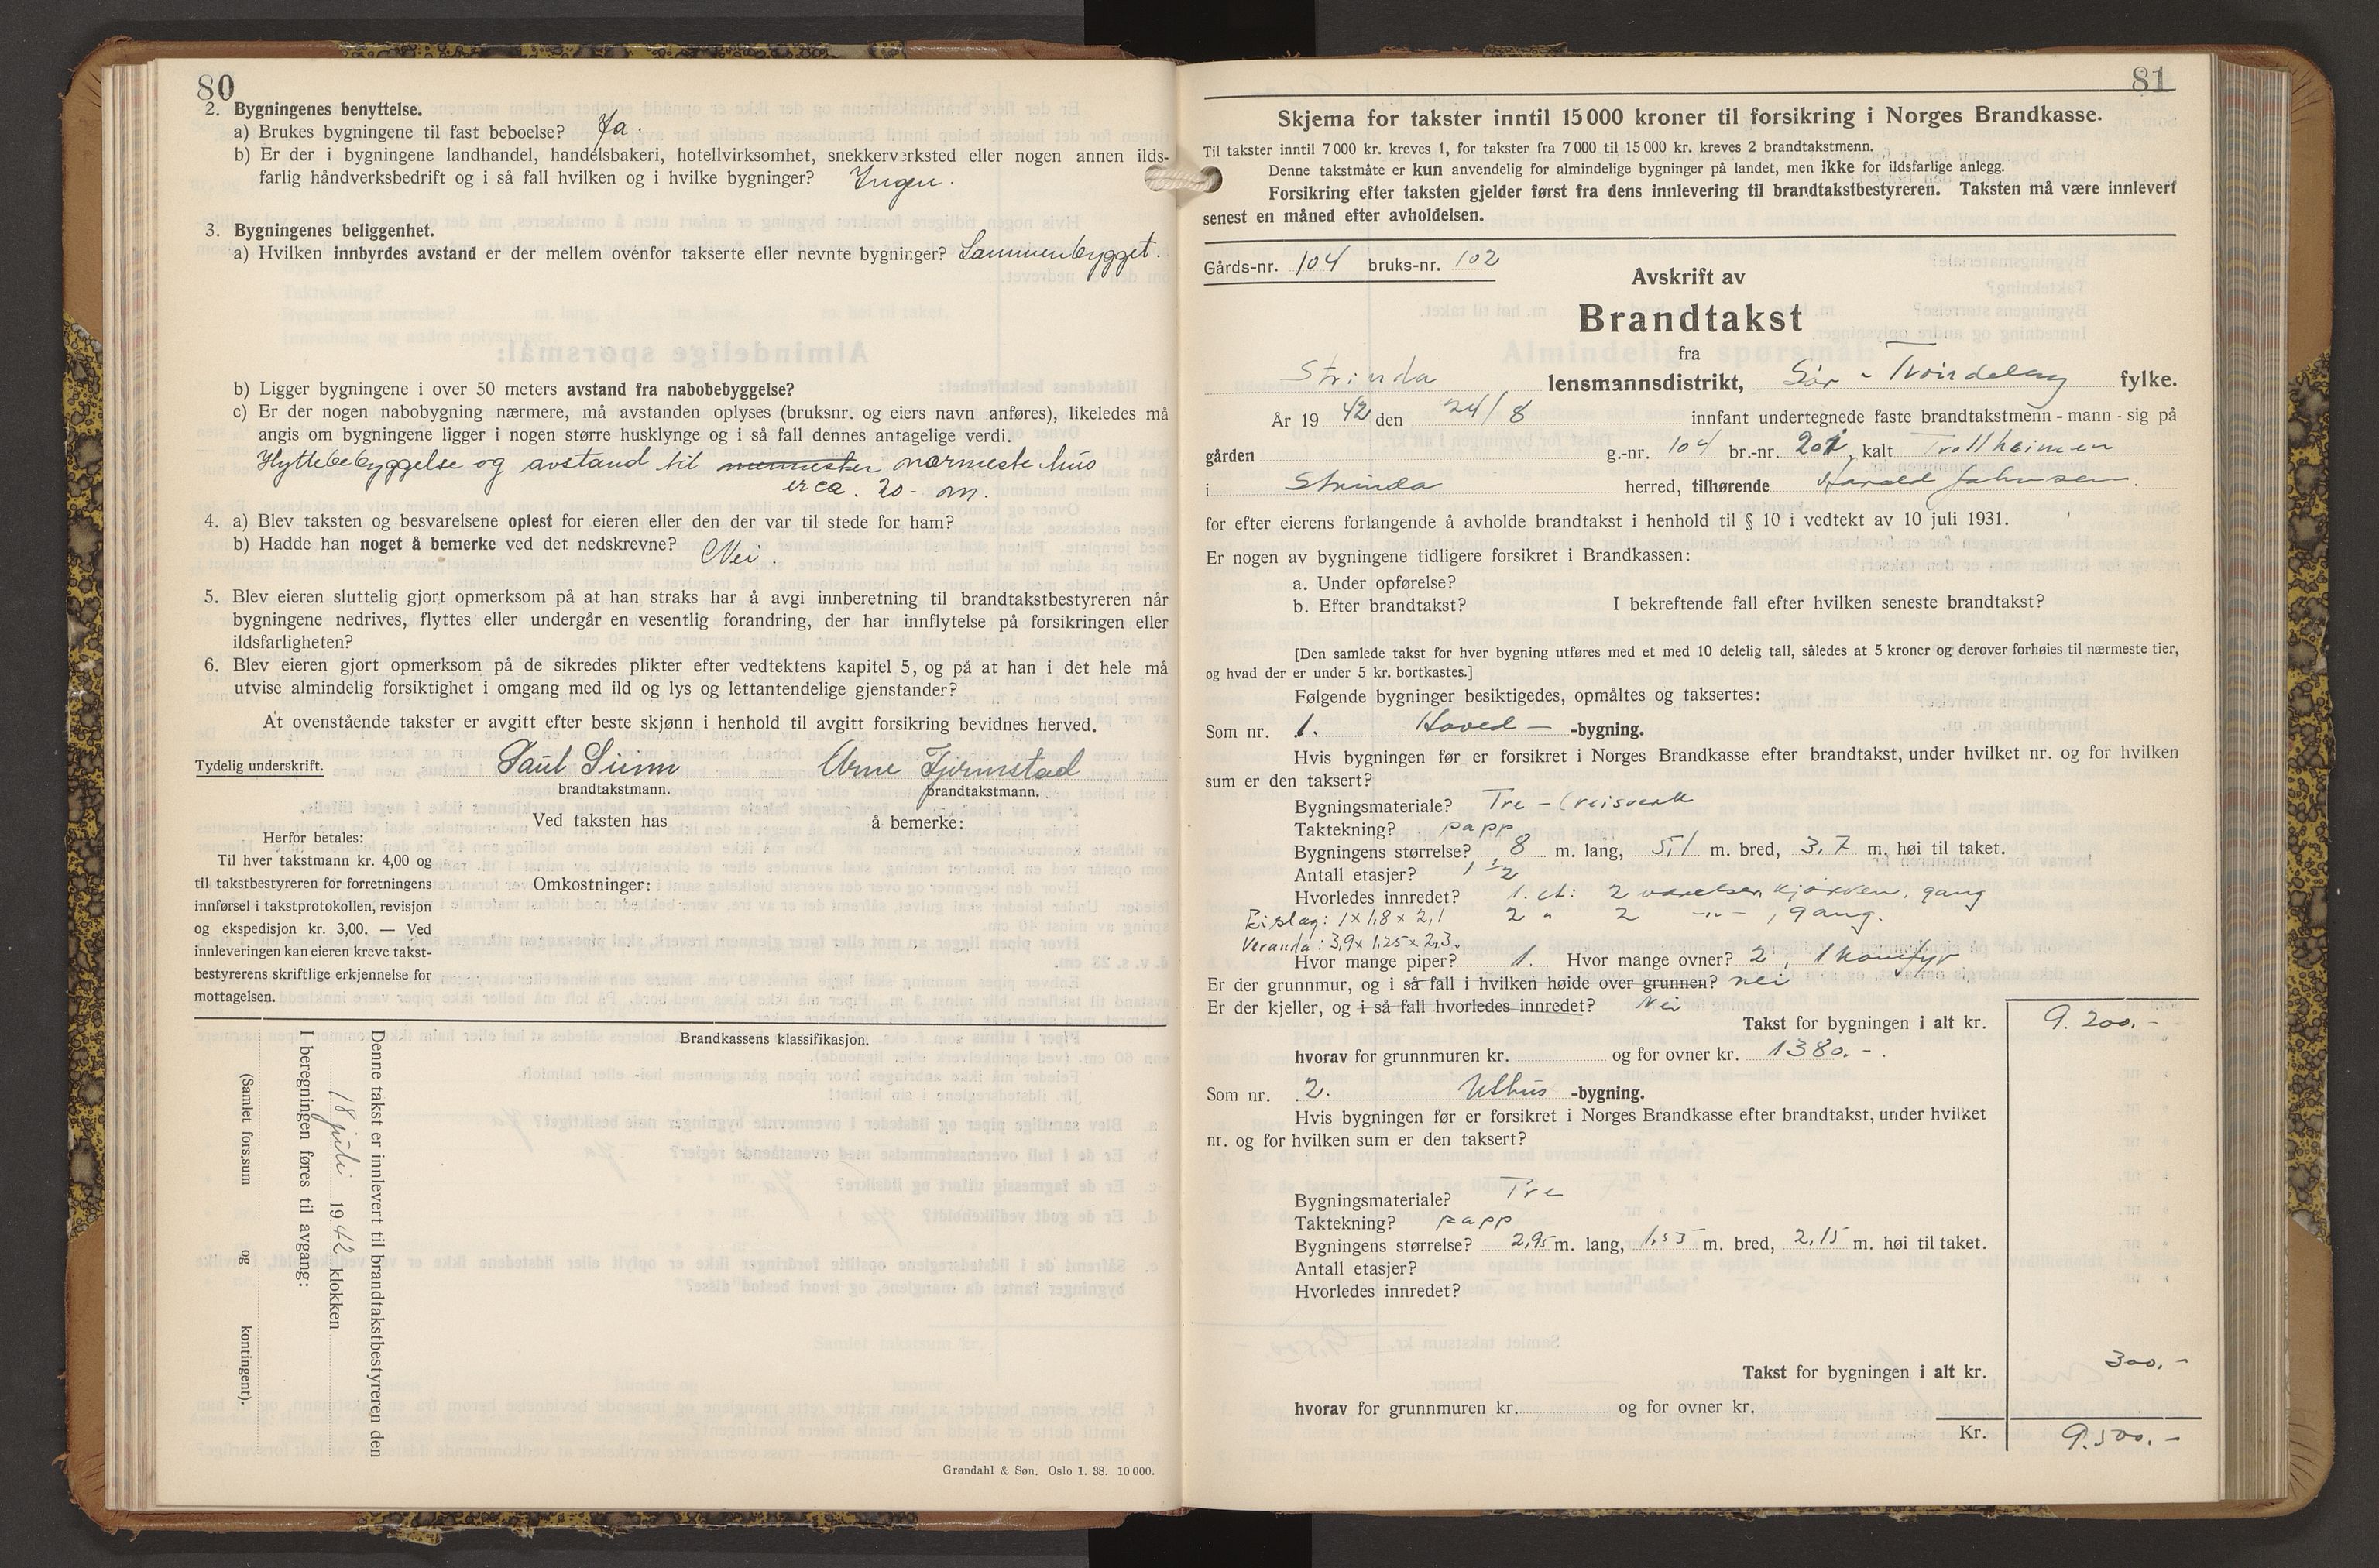 80
2. Bygningenes benyttelse.
a) Brukes bygningene til fast beboelse? Ja.
b) Er der i bygningene landhandel, handelsbakeri, hotellvirksomhet, snekkerverksted eller nogen annen ilds-
farlig håndverksbedrift og i så fall hvilken og i hvilke bygninger? Ingen.
3. Bygningenes beliggenhet.
a) Hvilken innbyrdes avstand er der mellem ovenfor takserte eller nevnte bygninger? Sammenbygget.
b) Ligger bygningene i over 50 meters avstand fra nabobebyggelse?
c) Er der nogen nabobygning nærmere, må avstanden oplyses (bruksnr. og eiers navn anføres), likeledes må
angis om bygningene ligger i nogen større husklynge og i så fall dennes antagelige verdi.
Hyttebebyggelse og avstand til nærmeste hus
er ca. 20 - m.
4. a) Blev taksten og besvarelsene oplest for eieren eller den der var til stede for ham?
b) Hadde han noget å bemerke ved det nedskrevne? Nei.
5. Blev eieren sluttelig gjort opmerksom på at han straks har å avgi innberetning til brandtakstbestyreren når
bygningene nedrives, flyttes eller undergår en vesentlig forandring, der har innflytelse på forsikringen eller
ildsfarligheten?
6. Blev eieren gjort opmerksom på de sikredes plikter efter vedtektens kapitel 5, og på at han i det hele må
utvise almindelig forsiktighet i omgang med ild og lys og lettantendelige gjenstander?
At ovenstående takster er avgitt efter beste skjønn i henhold til avgitt forsikring bevidnes herved.
Tydelig underskrift. Paul Sunn Arne Fjermstad
brandtakstmann. brandtakstmann.
Ved taksten has å bemerke:
Herfor betales:
Til hver takstmann kr. 4,00 og
til takstbestyreren for forretningens
innførsel i takstprotokollen, revisjon
og ekspedisjon kr. 3,00. — Ved
innleveringen kan eieren kreve takst-
bestyrerens skriftlige erkjennelse for
mottagelsen.
Omkostninger:
Brandkassens klassifikasjon.
Denne takst er innlevert til brandtakstbestyreren den
18 juli 1942 klokken
I beregningen føres til avgang:
(Samlet fors.sum og kontingent).
Grøndahl & Søn. Oslo 1. 38. 10 000.
81
Skjema for takster inntil 15 000 kroner til forsikring i Norges Brandkasse.
Til takster inntil 7 000 kr. kreves 1, for takster fra 7 000 til 15 000 kr. kreves 2 brandtakstmenn.
Denne takstmåte er kun anvendelig for almindelige bygninger på landet, men ikke for ildsfarlige anlegg.
Forsikring efter taksten gjelder først fra dens innlevering til brandtakstbestyreren. Taksten må være innlevert
senest en måned efter avholdelsen.
Gårds-nr. 104 bruks-nr. 102
Avskrift av
Brandtakst
fra
Strinda lensmannsdistrikt, Sør - Trøndelag fylke.
År 19 42 den 24/8 innfant undertegnede faste brandtakstmenn - mann - sig på
gården g.-nr. 104 br.-nr. 201, kalt Trollheimen
i Strinda herred, tilhørende Harald Johnsen.
for efter eierens forlangende å avholde brandtakst i henhold til § 10 i vedtekt av 10 juli 1931.
Er nogen av bygningene tidligere forsikret i Brandkassen:
a. Under opførelse?
b. Efter brandtakst? I bekreftende fall efter hvilken seneste brandtakst?
[Den samlede takst for hver bygning utføres med et med 10 delelig tall, således at 5 kroner og derover forhøies til nærmeste tier,
og hvad der er under 5 kr. bortkastes.]
Følgende bygninger besiktigedes, opmåltes og taksertes:
Som nr. 1. Hoved - -bygning.
Hvis bygningen før er forsikret i Norges Brandkasse efter brandtakst, under hvilket nr. og for hvilken
sum er den taksert?
Bygningsmateriale? Tre - (reisverk
Taktekning? papp
Bygningens størrelse? 8 m. lang, 5,1 m. bred, 3,7 m. høi til taket.
Antall etasjer? 1 1/2
Hvorledes innredet? 1. et: 2 værelser, kjøkken, gang
Bislag: 1 x 1,8 x 2,1 2 " 2 -"-, gang.
Veranda: 3,9 x 1,25 x 2,3.
Hvor mange piper? 1. Hvor mange ovner? 2, 1 komfyr
Er der grunnmur, og i så fall i hvilken høide over grunnen? nei
Er der kjeller, og i så fall hvorledes innredet? Nei
Takst for bygningen i alt kr. 9.200.-
hvorav for grunnmuren kr. og for ovner kr. 1380.-.
Som nr. 2. Uthus -bygning.
Hvis bygningen før er forsikret i Norges Brandkasse efter brandtakst, under hvilket
nr. og for hvilken sum er den taksert?
Bygningsmateriale? Tre
Taktekning? papp
Bygningens størrelse? 2,95 m. lang, 1,55 m. bred, 2,15 m. høi til taket.
Antall etasjer?
Hvorledes innredet?
Takst for bygningen i alt kr. 300.-
hvorav for grunnmuren kr. og for ovner kr.
Kr. 9.500.-